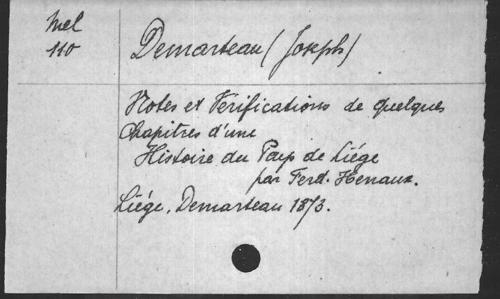 Mel
110
Demarteau (Joseph)
Notes et Vérifications de quelques
Chapitres d'une
Histoire du Pays de Liége
par Ferd. Henaux.
Liége, Demarteau 1873.